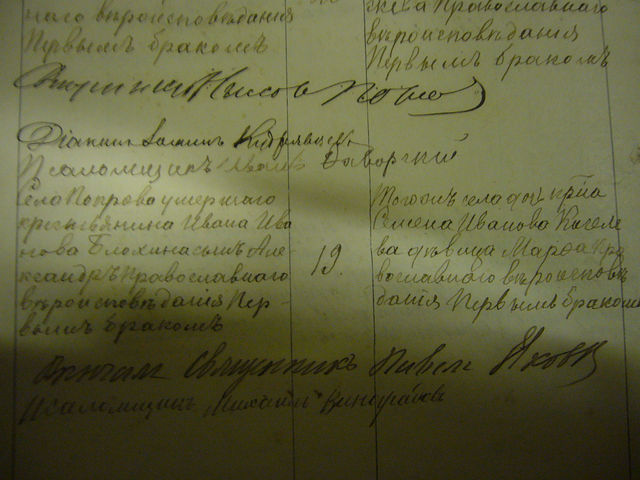 наго вѣроисповѣданія
Первымъ бракомъ
Православнаго
вѣроисповѣданія
Первымъ бракомъ
Діаконъ
Псаломщикъ Иванъ Заборскій
Села Покрова умершаго
крестьянина Ивана Ива
нова Блохина сынъ Але
ксандръ Православнаго
вѣроисповѣданія Пер-
вымъ бракомъ
19.
Тогожъ села
Семена Иванова Кисел
ва дѣвица Марѳа Пра
вославнаго вѣроисповѣ
данія Первымъ бракомъ
Вѣнчалъ Священникъ Павелъ
Псаломщикъ Михаилъ Виноградовъ